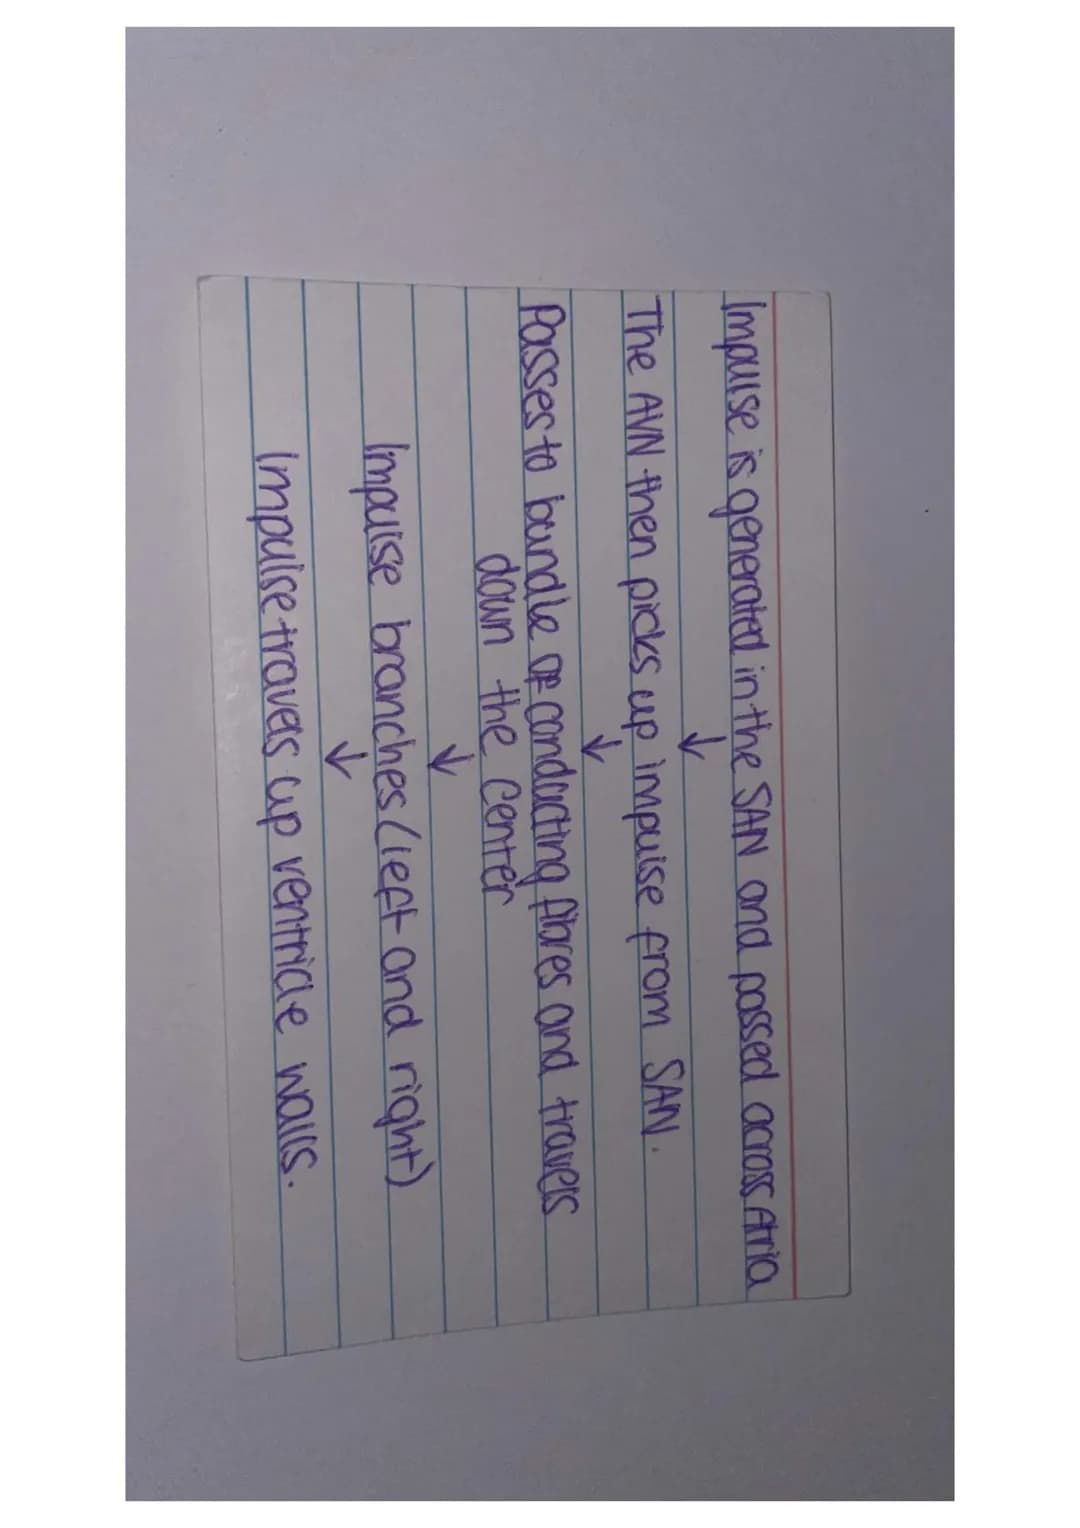 Impulse is generated in the SAN and passed across Atria
↓
The AVN then picks up impulse from SAN.
↓
Passes to bundle of conducting fibres and travels
down the center
↓
Impulse branches (left and right)
↓
Impulse travels up ventricle walls.